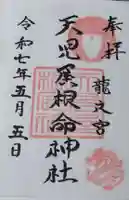 奉拝
龍文宮
天児屋根命神社
令和七年五月五日